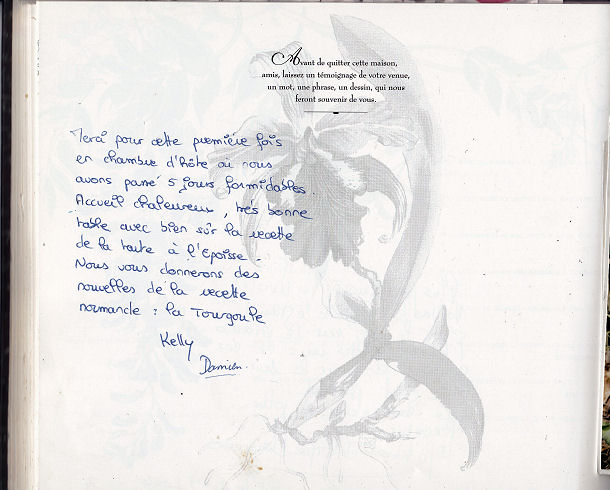 Avant de quitter cette maison,
amis, laissez un témoignage de votre venue,
un mot, une phrase, un dessin, qui nous
feront souvenir de vous.
Merci pour cette première fois
en chambre d'hôte où nous
avons passé 5 jours formidables.
Accueil chaleureux, très bonne
table avec bien sûr la recette
de la tarte à l'Epoisse.
Nous vous donnerons des
nouvelles de la recette
normande : la Tourgoule
Kelly
Damien